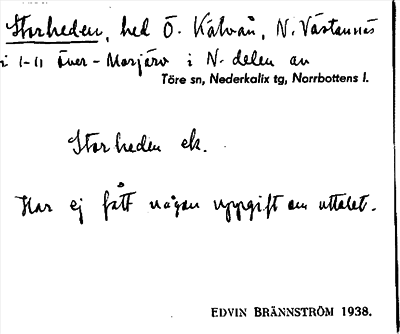 Storheden, hed Ö. Kälvån, N. Västannäs
i 1-11 Över-Morjärv i N. delen av
Töre sn, Nederkalix tg, Norrbottens l.
Storheden ek.
Har ej fått någon uppgift om uttalet.
EDVIN BRÄNNSTRÖM 1938.